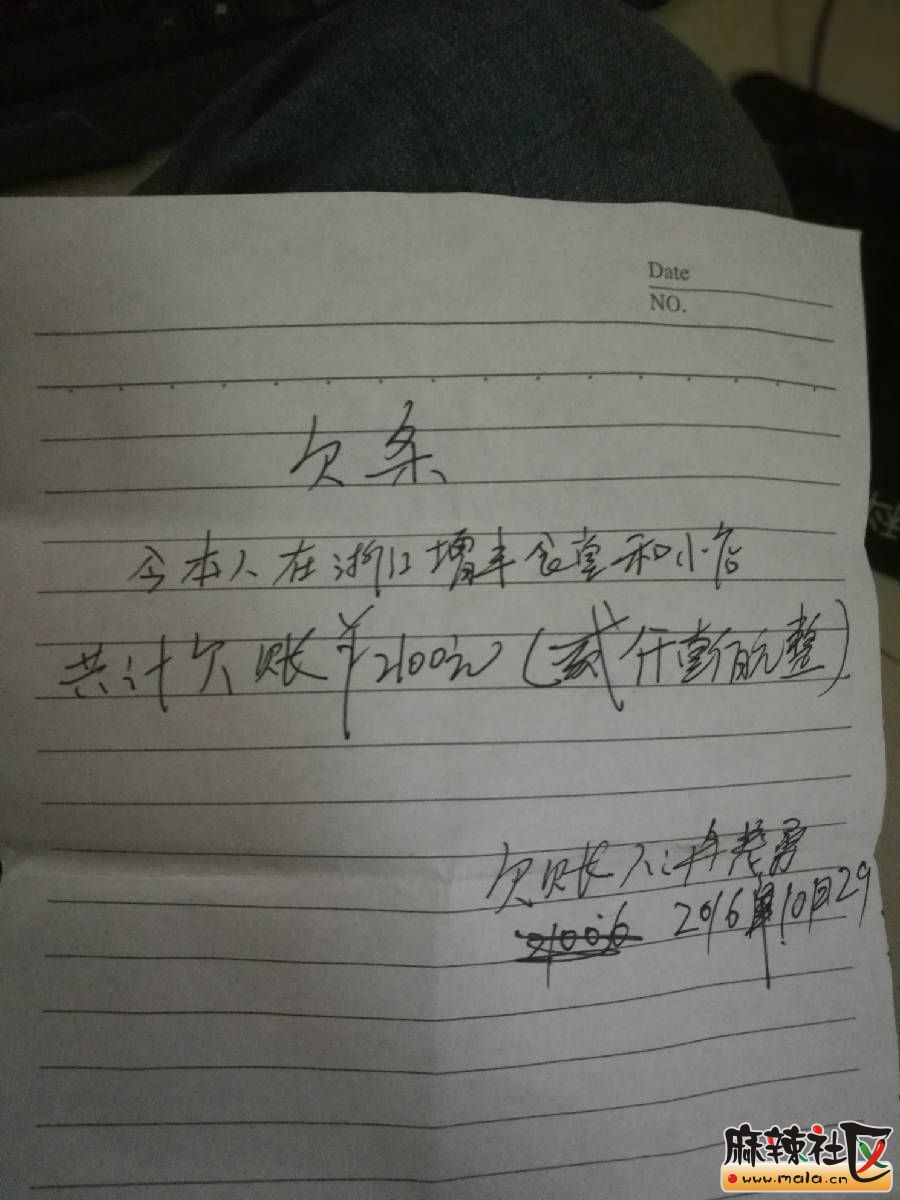 Date
NO.
欠条
今本人在浙江增丰食堂和小店
共计欠账¥2100元(贰仟壹佰元整)
欠账人:冉
2016年10月29
麻辣社区
www.mala.cn